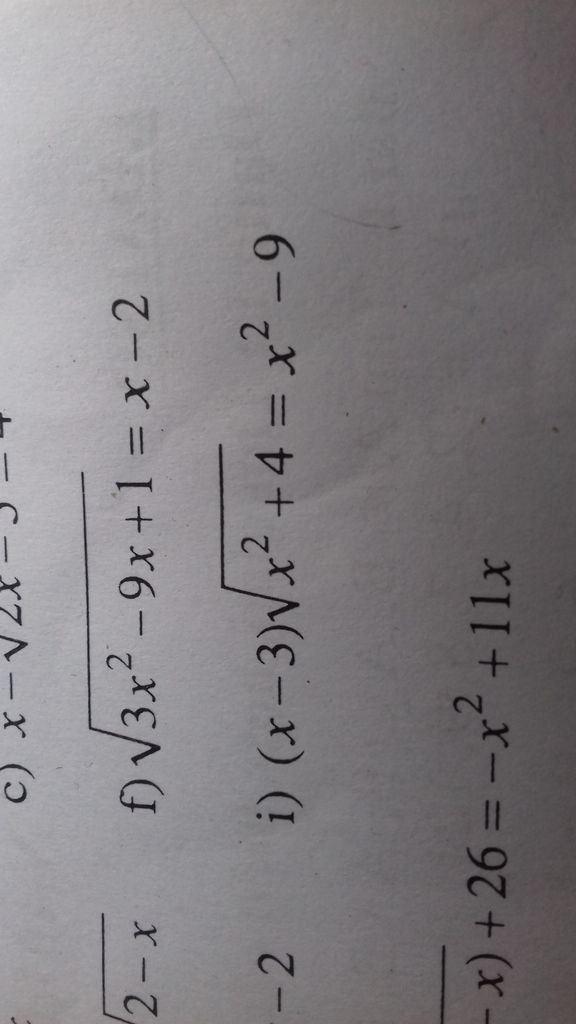 c) x − √2x −
√2 − x f) √3x² − 9x + 1 = x − 2
− 2 i) (x − 3)√x² + 4 = x² − 9
− x) + 26 = −x² + 11x